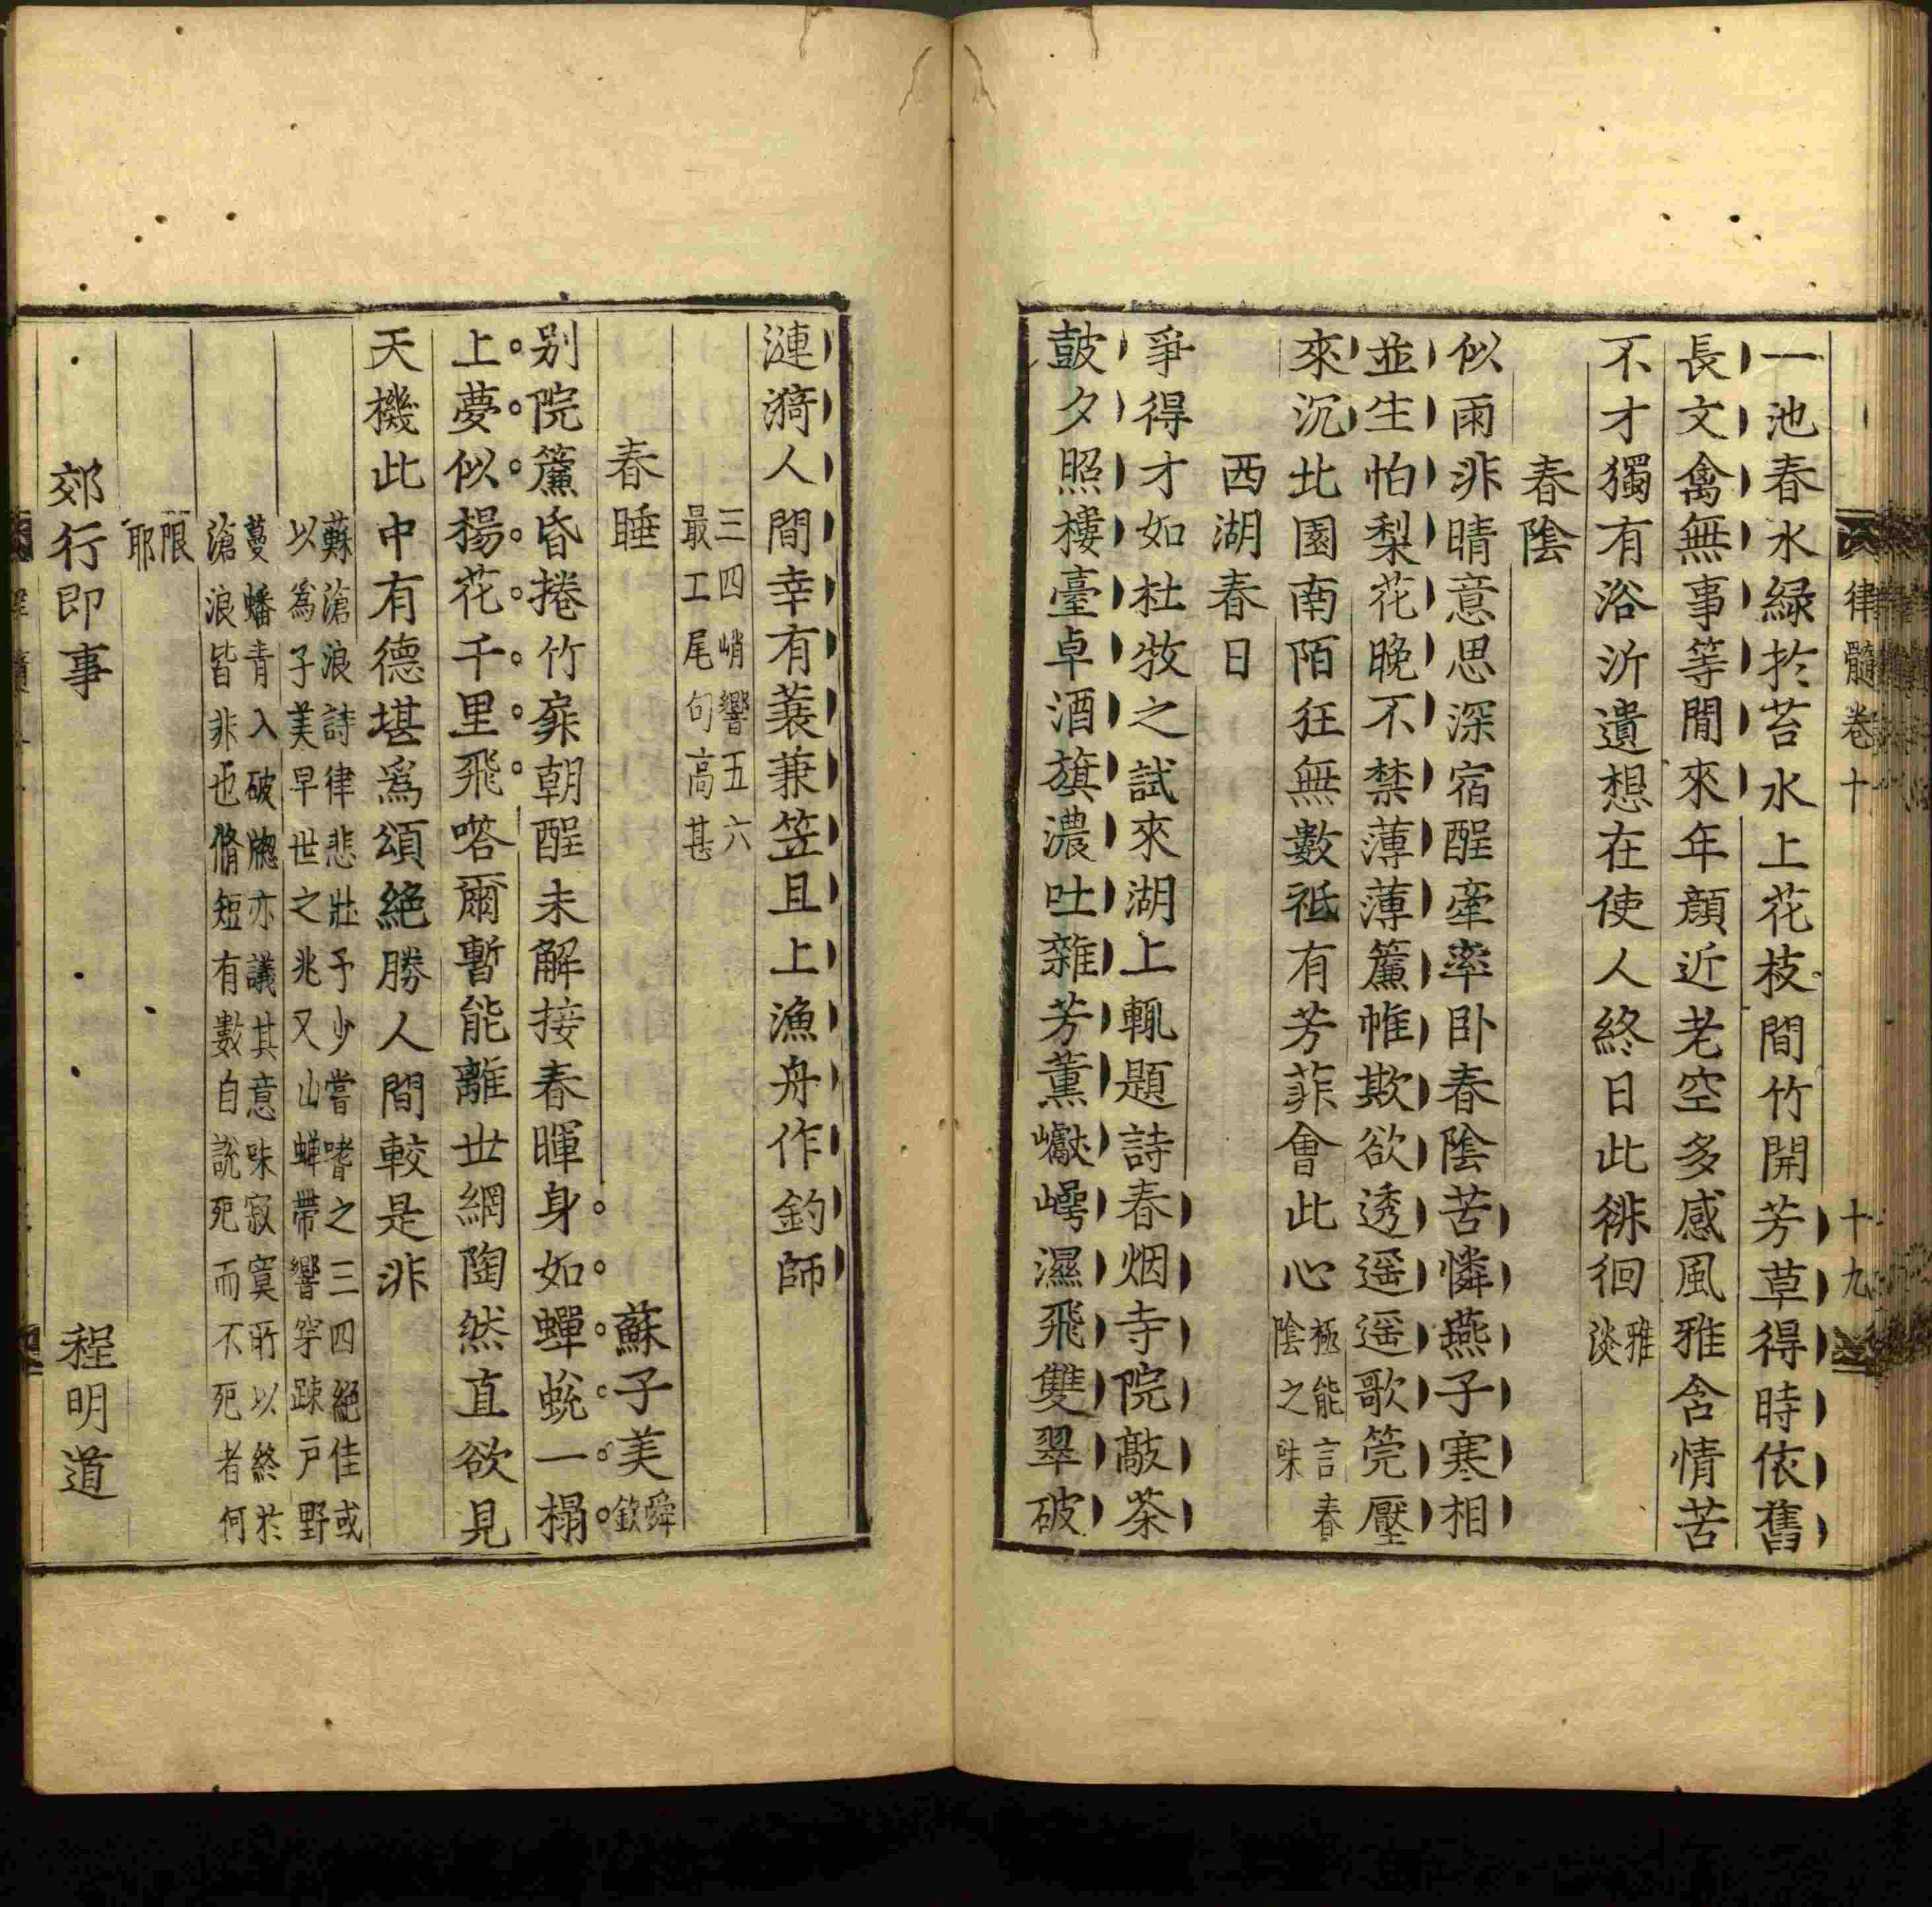 律髓卷十 十九
一池春水緑扵苔水上花枝間竹開芳草得時依舊
長文禽無事等閒來年顔近老空多感風雅含情苦
不才獨有浴沂遺想在使人終日此徘徊雅淡
春陰
似雨非晴意思深宿酲牽率卧春陰苦憐燕子寒相
並生怕梨花晚不禁薄薄簾帷欺欲透遥遥歌筦壓
來沉北園南陌狂無數祗有芳菲會此心極能言春陰之味
西湖春日
爭得才如杜牧之試來湖上輒題詩春烟寺院敲茶
鼓夕照樓臺卓酒旗濃吐雜芳薰巘崿濕飛雙翠破
漣漪人間幸有蓑兼笠且上漁舟作釣師
三四峭響五六
最工尾句高甚
春睡 蘇子美舜欽
别院簾昏捲竹扉朝酲未解接春暉身如蟬蛻一榻
上夢似楊花千里飛嗒爾暫能離世網陶然直欲見
天機此中有德堪爲頌絶勝人間較是非
蘇滄浪詩律悲壯予少嘗嗜之三四絕佳或
以爲子美早世之兆又山蟬帶響穿踈戸野
蔓蟠青入破牕亦議其意味寂寞所以終於
滄浪皆非也脩短有數自說死而不死者何
限
耶
郊行即事 程明道